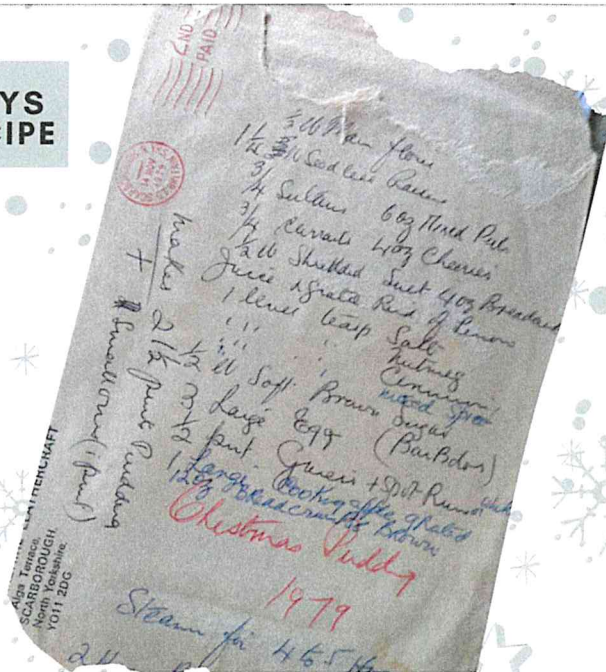 YS
IPE
2ND
PAID
lb Plain flour
1¼ lb Seedless Raisins
¾ Sultanas 6oz Mixed Peel
¾ Currants 4oz Cherries
½ lb Shredded Suet 4oz Breadcrumbs
Juice & Grated Rind of Lemon
1 level teasp Salt
" " " Nutmeg
" " " Cinnamon
mixed spice
½ lb Soft Brown Sugar
(Barbdos)
Large Egg
½ pint Guiness + spot Rum
1 Large cooking apple grated
12oz Breadcrumbs Brown
Christmas Puddig
1979
Steam for 4 to 5
makes 2 1½ pint Pudding
+ Small one (1 pint)
LEATHERCRAFT
Terrace,
SCARBOROUGH,
North Yorkshire.
YO11 2DG